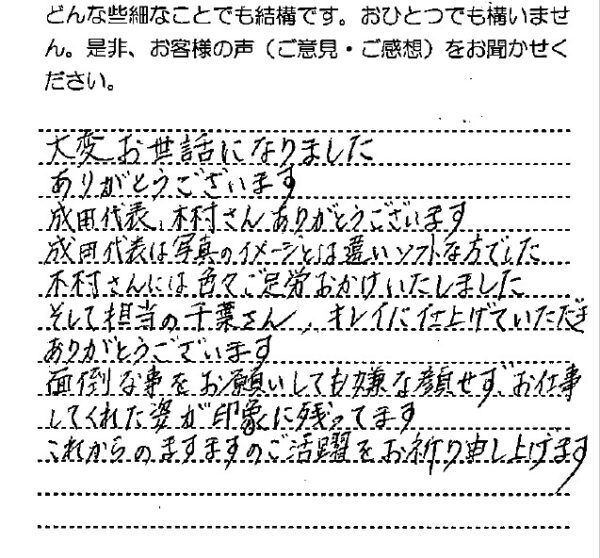 どんな些細なことでも結構です。おひとつでも構いませ
ん。是非、お客様の声（ご意見・ご感想）をお聞かせく
ださい。
大変お世話になりました
ありがとうございます
成田代表、木村さんありがとうございます
成田代表は写真のイメージとは違いソフトな方でした
木村さんには色々ご足労おかけいたしました
そして担当の千葉さん、キレイに仕上げていただき
ありがとうございます
面倒な事をお願いしても嫌な顔せず、お仕事
してくれた姿が印象に残ってます
これからのますますのご活躍をお祈り申し上げます